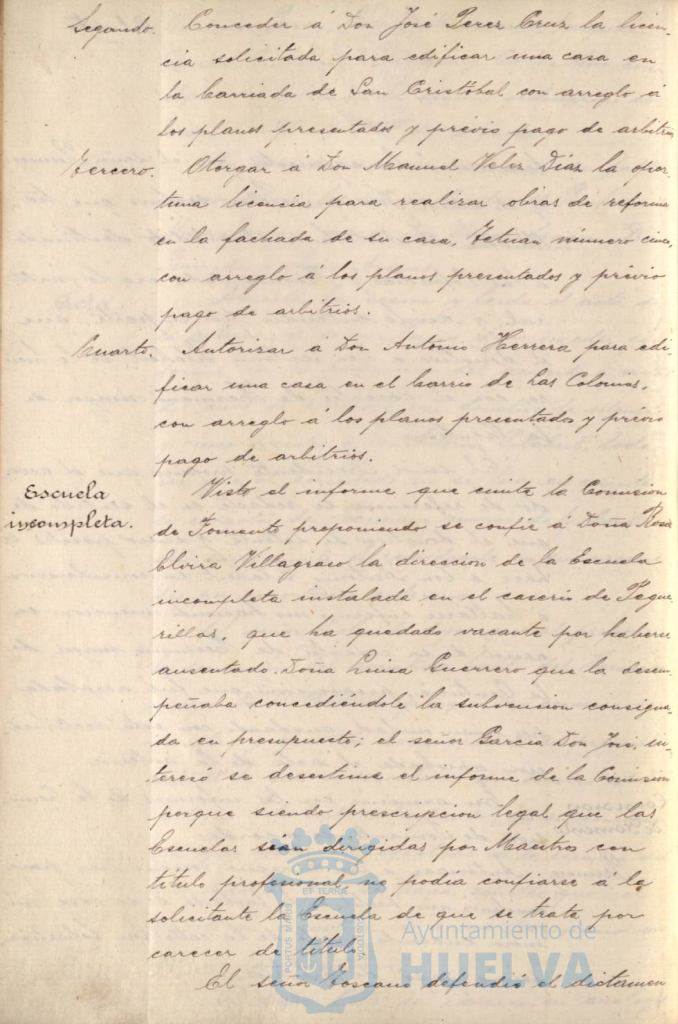 Segundo. Conceder á Don José Perez Cruz la licen-
cia solicitada para edificar una casa en
la barriada de San Cristóbal con arreglo á
los planos presentados y prévio pago de arbitrios
Tercero. Otorgar á Don Manuel Velez Díaz la opor-
tuna licencia para realizar obras de reforma
en la fachada de su casa, Tetuan número cinco,
con arreglo á los planos presentados y prévio
pago de arbitrios.
Cuarto. Autorizar á Don Antonio Herrera para edi-
ficar una casa en el barrio de Las Colonias,
con arreglo á los planos presentados y prévio
pago de arbitrios.
Escuela
incompleta.
Visto el informe que emite la Comision
de Fomento proponiendo se confíe á Doña Rosa
Elvira Villagraso la direccion de la Escuela
incompleta instalada en el caserío de Pegue-
rillas, que ha quedado vacante por haberse
ausentado Doña Luisa Guerrero que la desem-
peñaba concediéndole la subvencion consigna-
da en presupuesto; el señor Garcia Don José, in-
teresó se desestime el informe de la Comision
porque siendo prescripcion legal que las
Escuelas sean dirigidas por Maestros con
título profesional, no podía confiarse á la
solicitante la Escuela de que se trate por
carecer de título.
El señor Toscano defendió el dictamen
PORTUS MARIS
ET TERRE
CUSTODIA
Ayuntamiento de
HUELVA